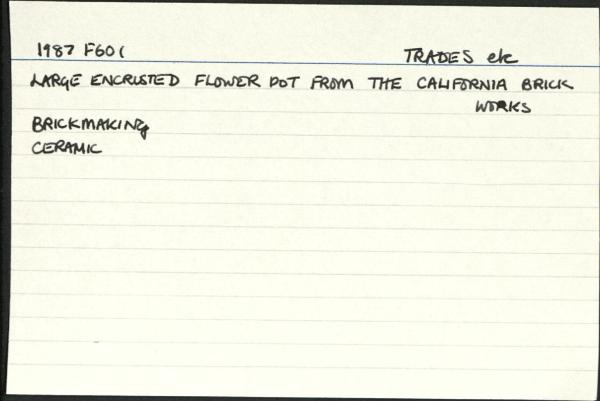 1987 F601 TRADES etc
LARGE ENCRUSTED FLOWER POT FROM THE CALIFORNIA BRICK
WORKS
BRICKMAKING
CERAMIC